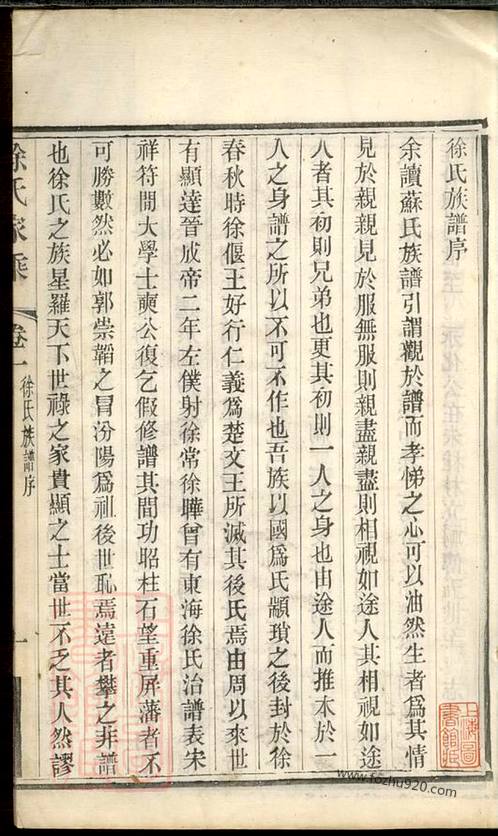 徐氏族譜序
余讀蘇氏族譜引謂觀於譜而孝悌之心可以油然生者爲其情
見於親親見於服無服則親盡親盡則相視如途人其相視如途
人者其初則兄弟也更其初則一人之身也由途人而推本於一
人之身譜之所以不可不作也吾族以國爲氏顓頊之後封於徐
春秋時徐偃王好行仁義爲楚文王所滅其後氏焉由周以來世
有顯達晉成帝二年左僕射徐常徐曄曾有東海徐氏治譜表宋
祥符間大學士奭公復乞假修譜其間功昭柱石望重屏藩者不
可勝數然必如郭崇韜之冒汾陽爲祖後世恥焉遠者攀之非譜
也徐氏之族星羅天下世祿之家貴顯之士當世不乏其人然謬
徐氏家乘
卷一
徐氏族譜序
一
上海圖書館藏
www.fozhu920.com